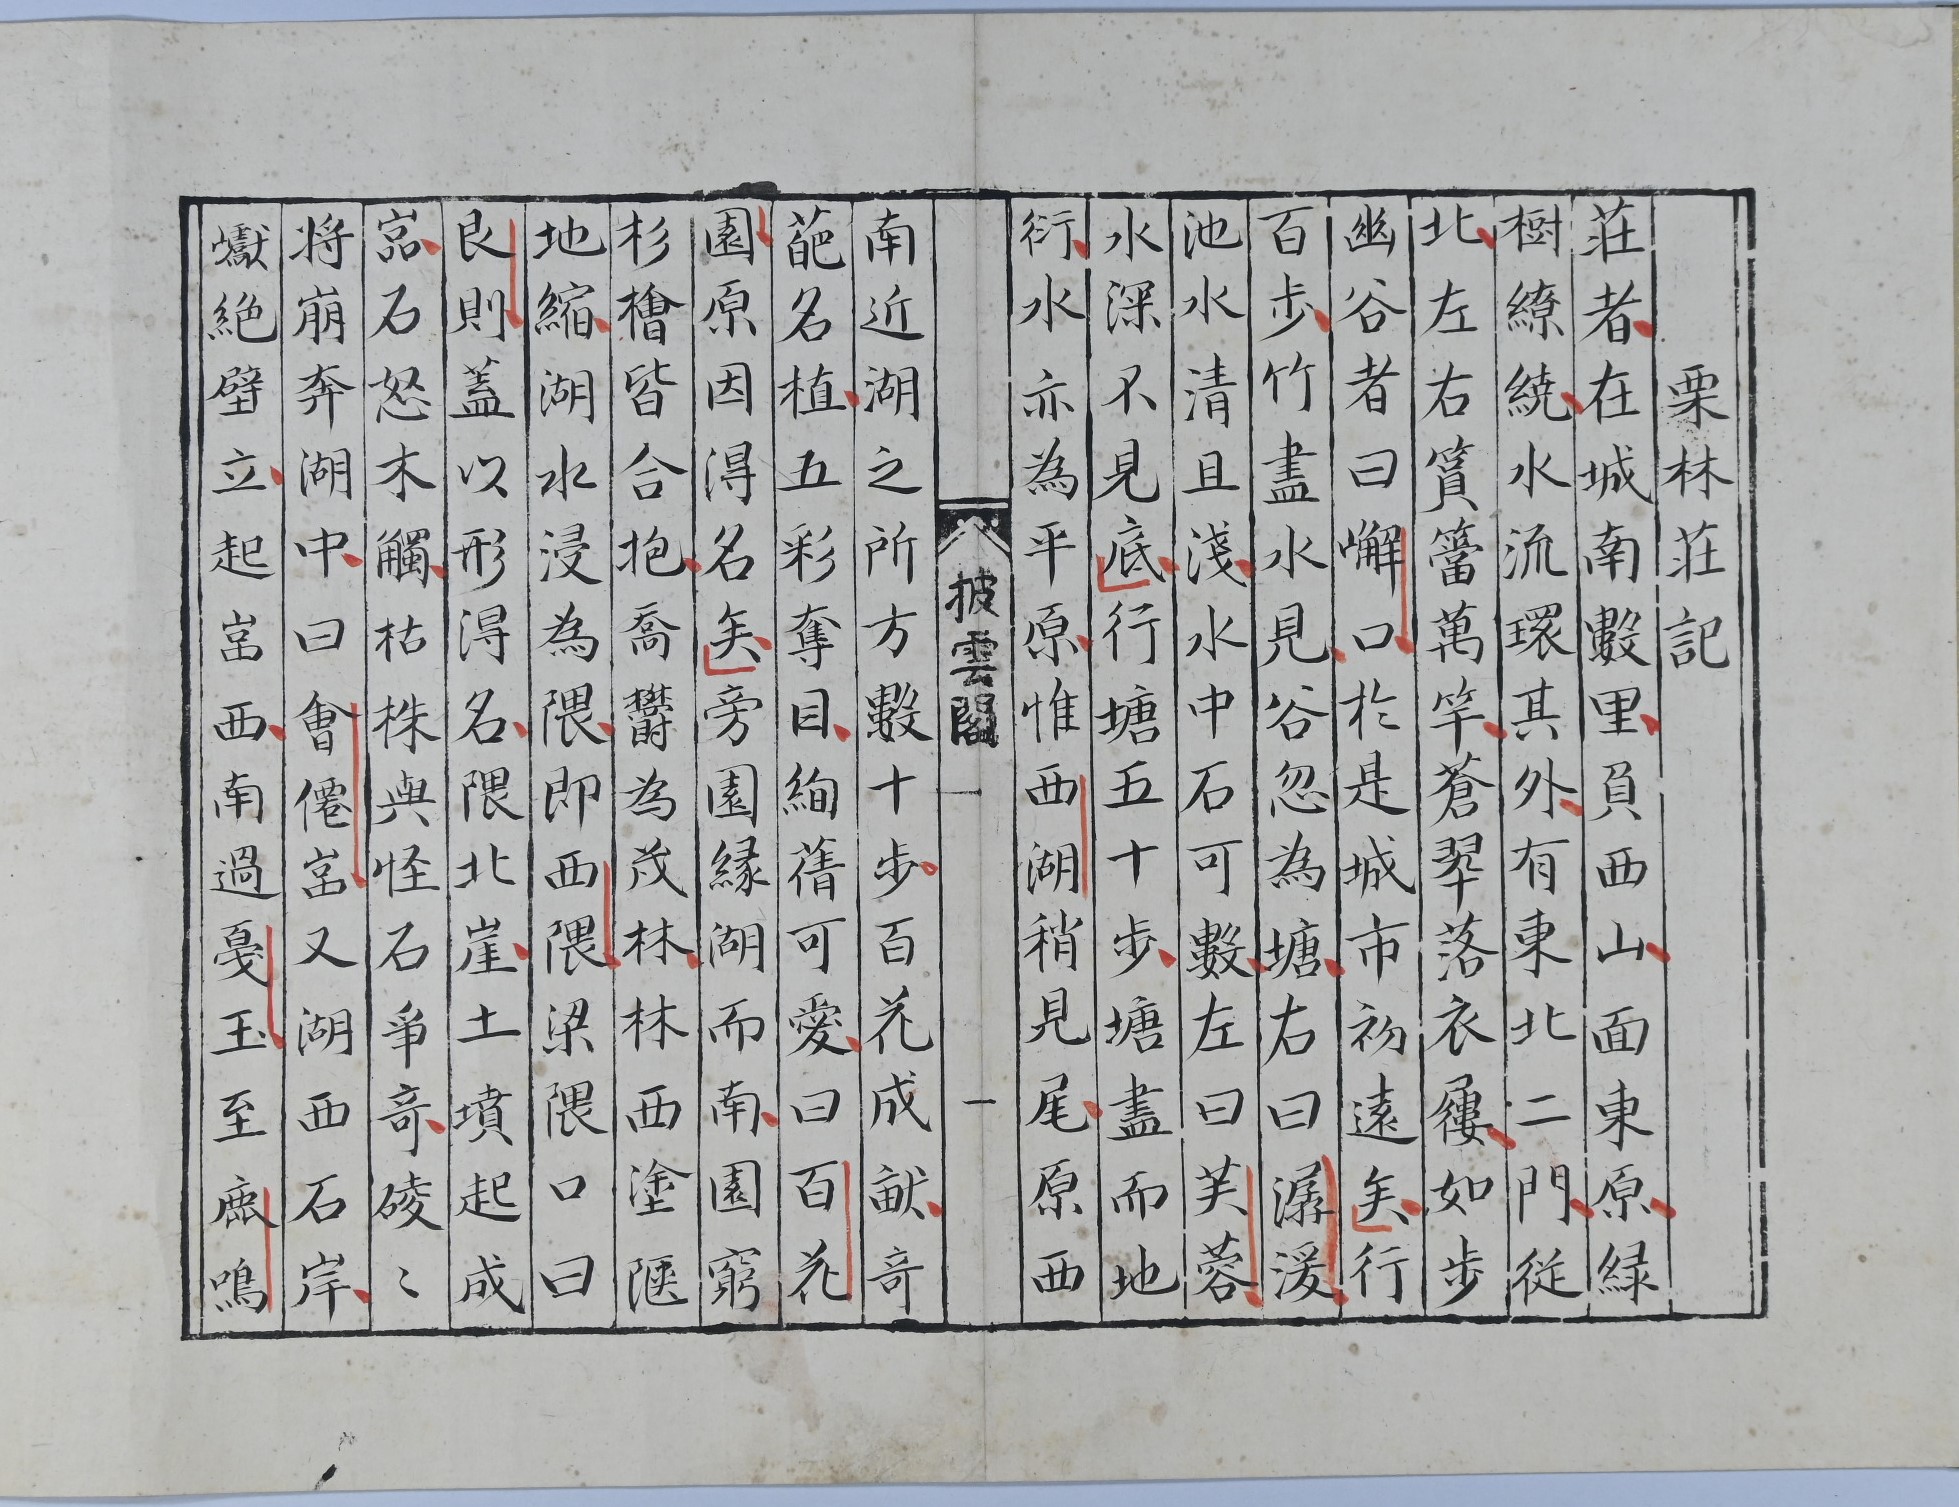 栗林莊記
莊者在城南數里負西山面東原緑
樹繚繞水流環其外有東北二門從
北左右篔簹萬竿蒼翠落衣履如步
幽谷者曰嶰口於是城市初遠矣行
百步竹盡水見谷忽為塘塘右曰潺湲
池水清且淺水中石可數左曰芙蓉
水深不見底行塘五十步塘盡而地
衍水亦為平原惟西湖稍見尾原西
披雲閣
一
南近湖之所方數十步百花成畝奇
葩名植五彩奪目絢蒨可愛曰百花
園原因得名矣旁園緣湖而南園窮
杉檜皆合抱喬鬱為茂林林西塗陿
地縮湖水浸為隈即西隈梁隈口曰
艮則蓋以形得名隈北崖土墳起成
嵓石怒木觸枯株與怪石爭奇磢〻
将崩奔湖中曰會僊嵓又湖西石岸
巘絶壁立起嵓西南過戞玉至鹿鳴